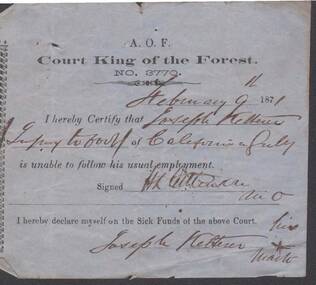 A. O. F.
Court King of the Forest.
NO. 3770.
February 9th 1871
I hereby Certify that Joseph Kettner
Injury to foot at California Gully
is unable to follow his usual employment.
Signed
M O
I hereby declare myself on the Sick Funds of the above Court.
his
Joseph Kettner x
mark